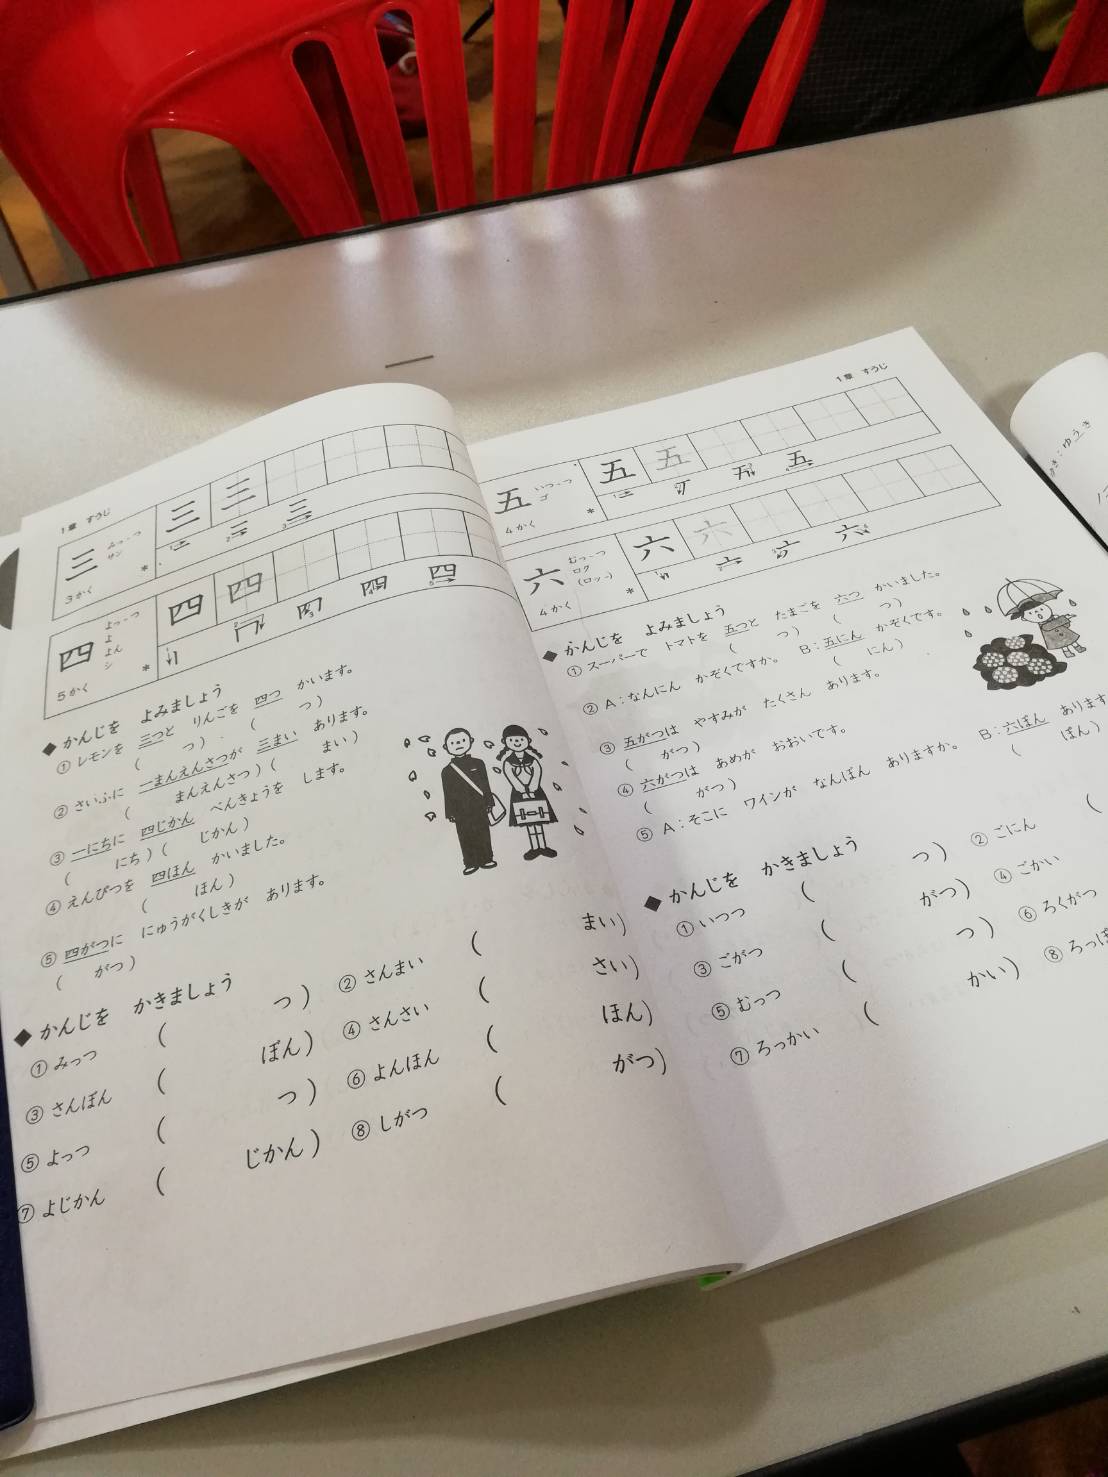 1章 すうじ
三 みっ-つ サン
3かく
*
三 三
四 よっ-つ よ よん シ
5かく
*
四 四
◆かんじを よみましょう
① レモンを 三つと りんごを 四つ かいます。
( つ) ( つ)
② さいふに 一まんえんさつが 三まい あります。
( まんえんさつ) ( まい)
③ 一にちに 四じかん べんきょうを します。
( にち) ( じかん)
④ えんぴつを 四ほん かいました。
( ほん)
⑤ 四がつに にゅうがくしきが あります。
( がつ)
◆かんじを かきましょう
① みっつ ( つ) ② さんまい ( まい)
③ さんぼん ( ぼん) ④ さんさい ( さい)
⑤ よっつ ( つ) ⑥ よんほん ( ほん)
⑦ よじかん ( じかん) ⑧ しがつ ( がつ)
1章 すうじ
五 いつ-つ ゴ
4かく
*
五 五
六 むっ-つ ロク (ロッ-)
4かく
*
六 六
◆かんじを よみましょう
① スーパーで トマトを 五つと たまごを 六つ かいました。
( つ) ( つ)
② A:なんにん かぞくですか。 B:五にん かぞくです。
( にん)
③ 五がつは やすみが たくさん あります。
( がつ)
④ 六がつは あめが おおいです。
( がつ)
⑤ A:そこに ワインが なんぼん ありますか。 B:六ぽん あります
( ぽん)
◆かんじを かきましょう
① いつつ ( つ) ② ごにん (
③ ごがつ ( がつ) ④ ごかい
⑤ むっつ ( つ) ⑥ ろくがつ
⑦ ろっかい ( かい) ⑧ ろっぽ